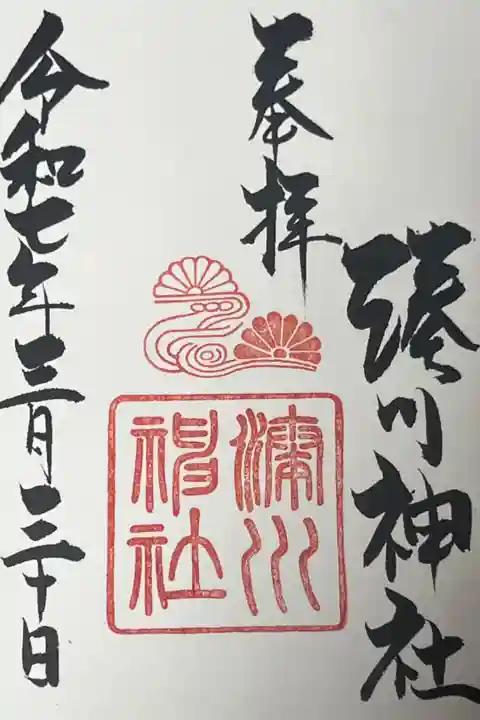 湊川神社
奉拝
湊川
神社
令和七年三月三十日